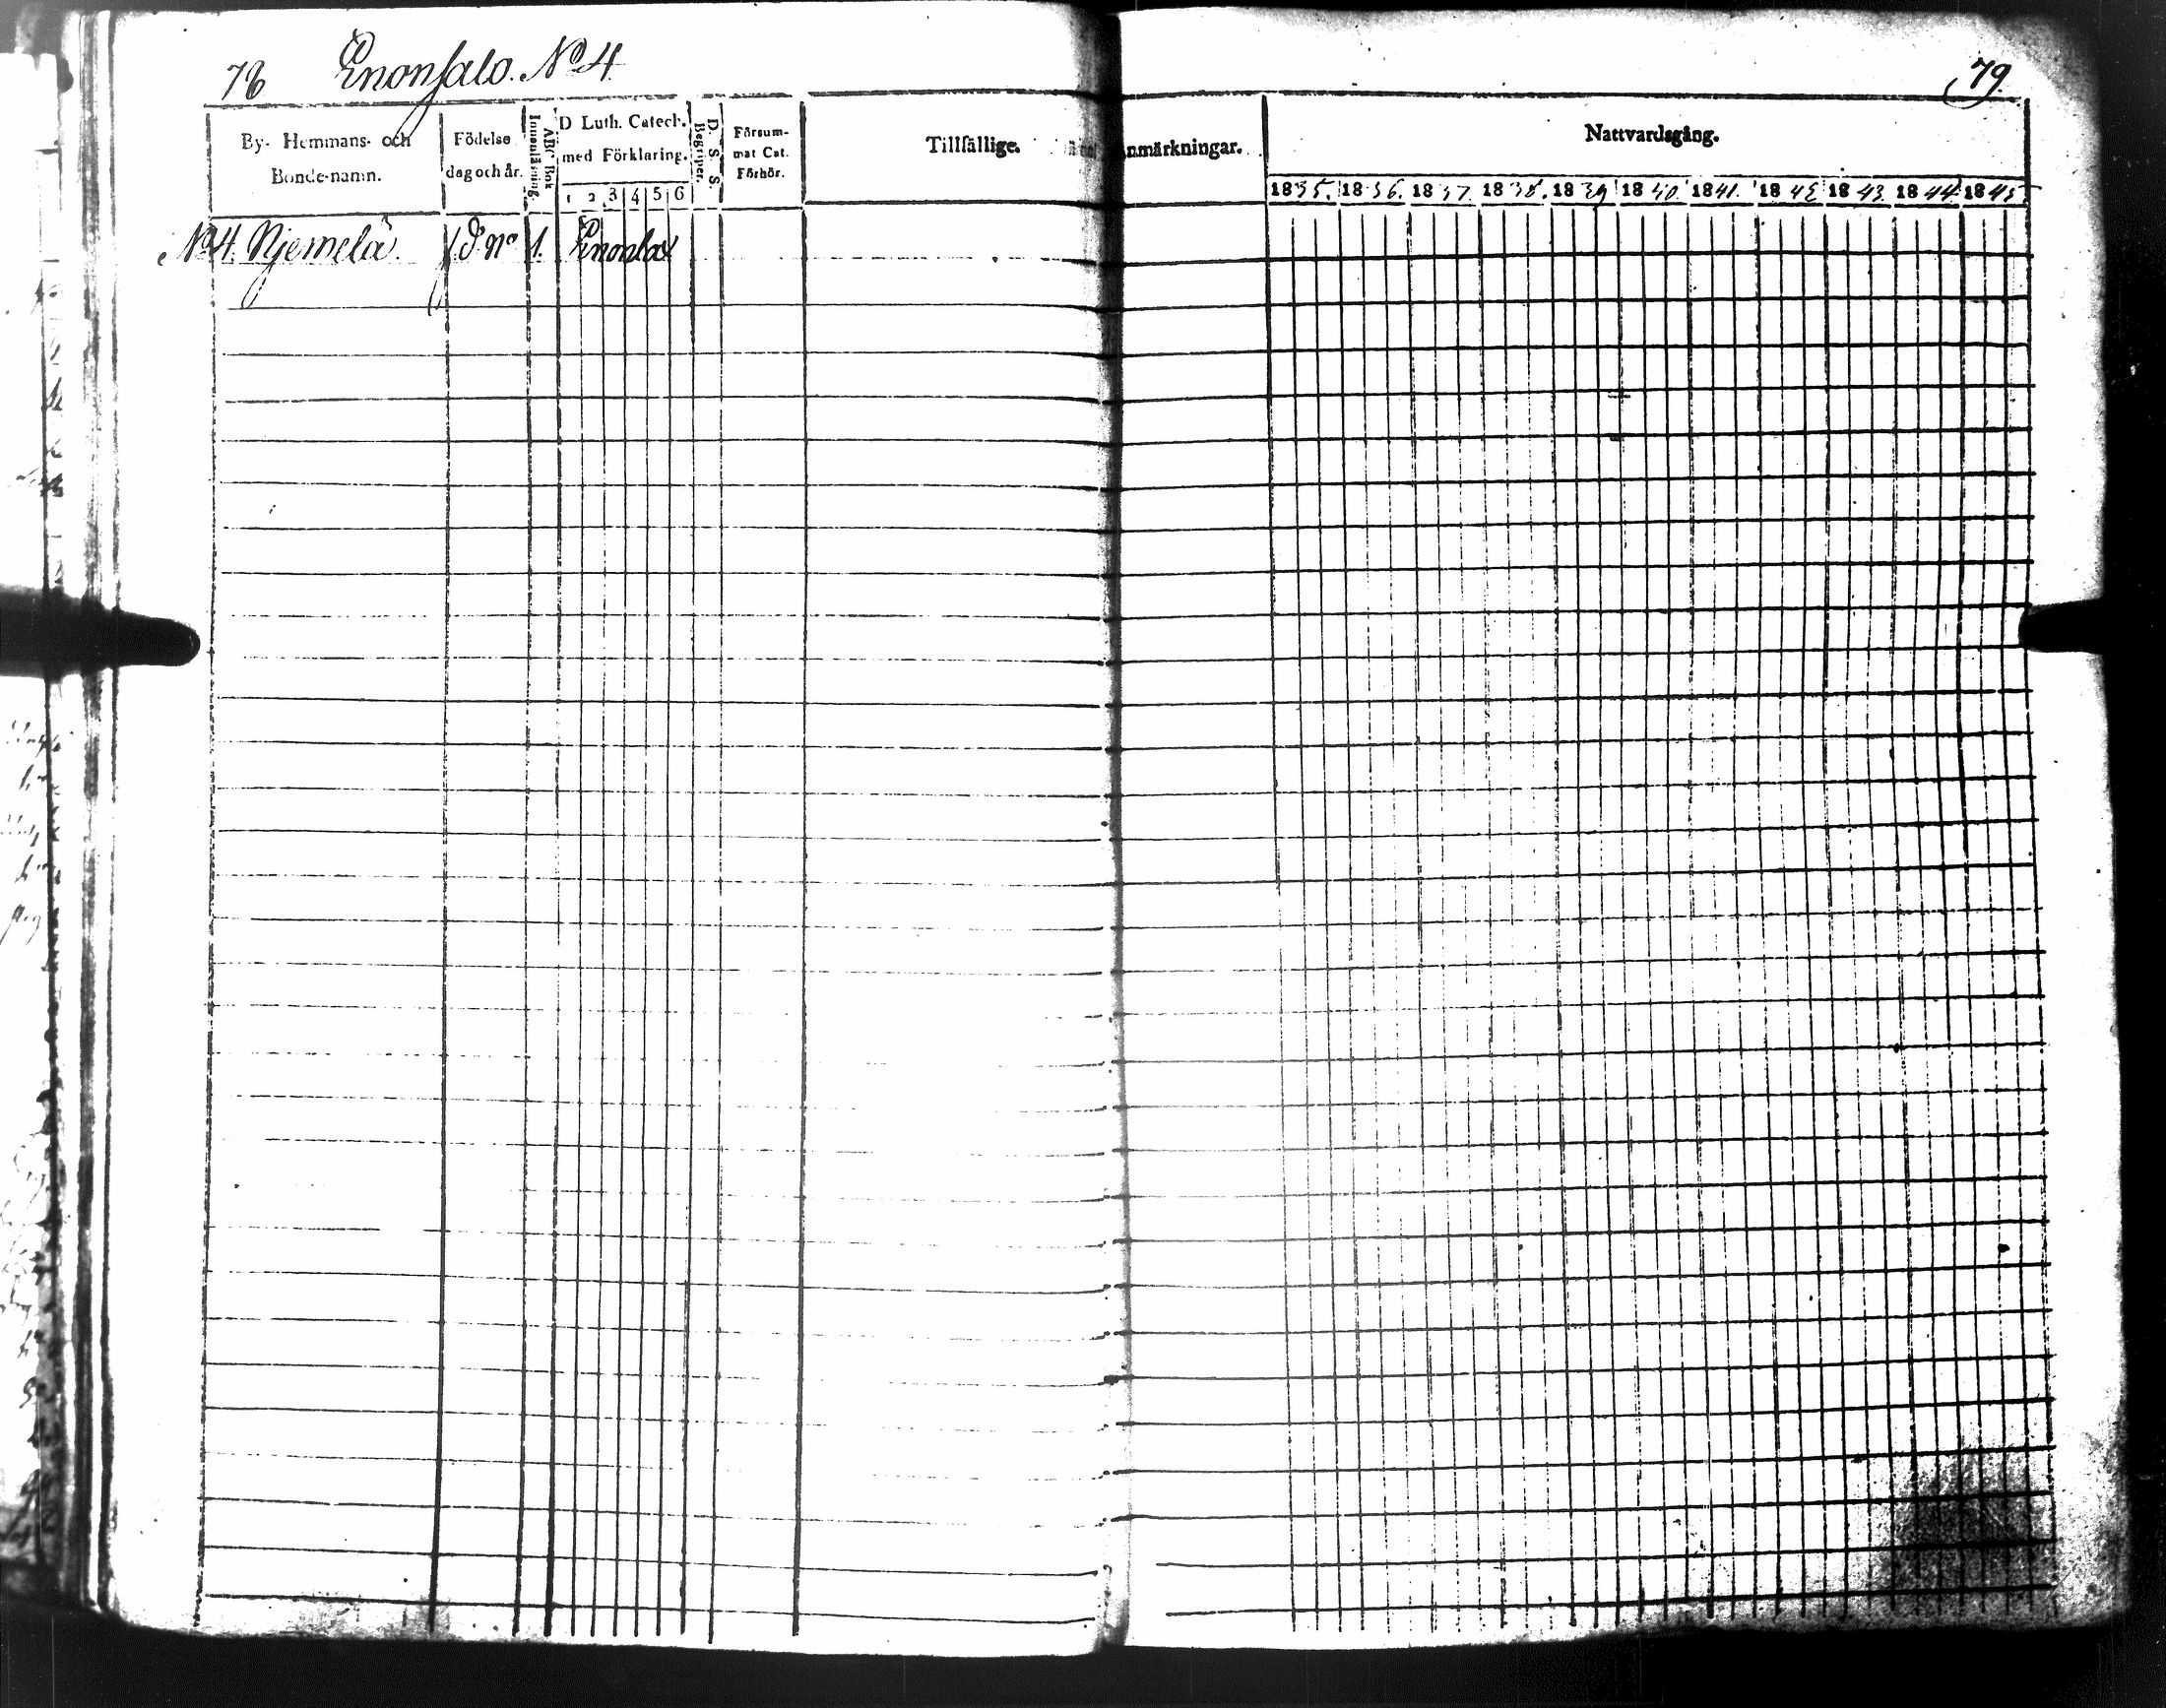 78 Enonsalo. No 4
79.
By- Hemmans- och Bonde-namn.
Födelse dag och år.
Innanläsning.
ABC Bok
D Luth. Catech. med Förklaring.
1 2 3 4 5 6
D. S. S. Begriper.
Försum-mat Cat. Förhör.
Tillfällige Anmärkningar.
Nattvardsgång.
1835. 1836. 1837. 1838. 1839 1840. 1841. 1842 1843. 1844. 1845.
No 4. Njemelä. No 1. Enonlax